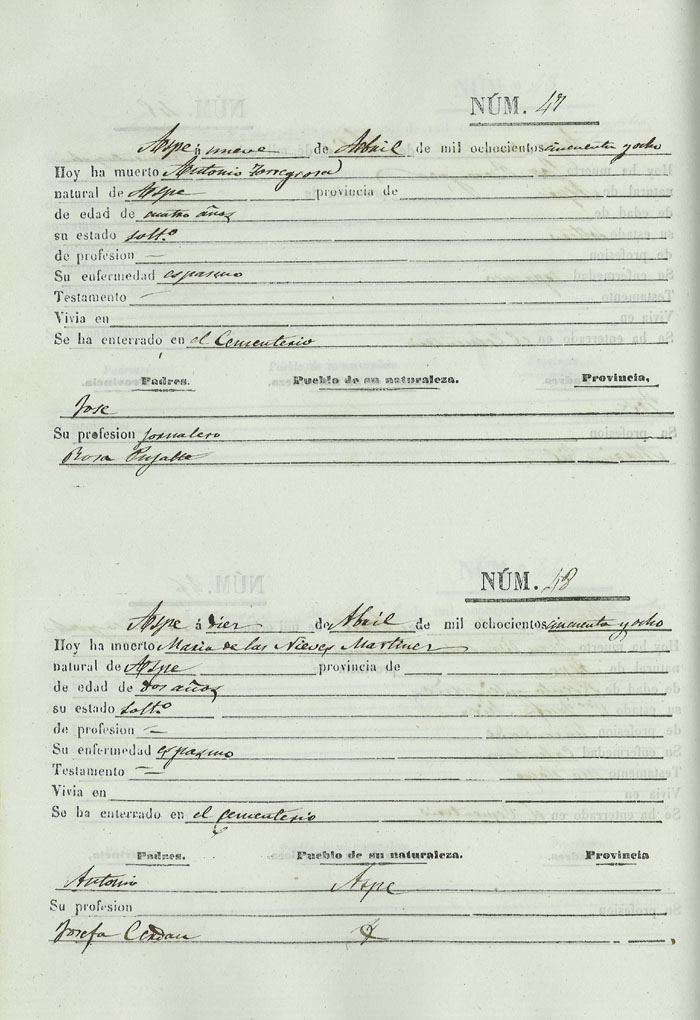 NÚM. 47
Aspe á nueve de Abril de mil ochocientos cincuenta y ocho
Hoy ha muerto Antonio Torregrosa
natural de Aspe provincia de
de edad de cuatro años
su estado solt.o
de profesion —
Su enfermedad espasmo
Testamento —
Vivia en
Se ha enterrado en el Cementerio
Padres. Pueblo de su naturaleza. Provincia,
Jose
Su profesion jornalero
Rosa Pujalte
NÚM. 48
Aspe á diez de Abril de mil ochocientos cincuenta y ocho
Hoy ha muerto Maria de las Nieves Martinez
natural de Aspe provincia de
de edad de dos años
su estado solt.o
de profesion —
Su enfermedad espasmo
Testamento —
Vivia en
Se ha enterrado en el cementerio
Padres. Pueblo de su naturaleza. Provincia
Antonio Aspe
Su profesion
Josefa Cerdan